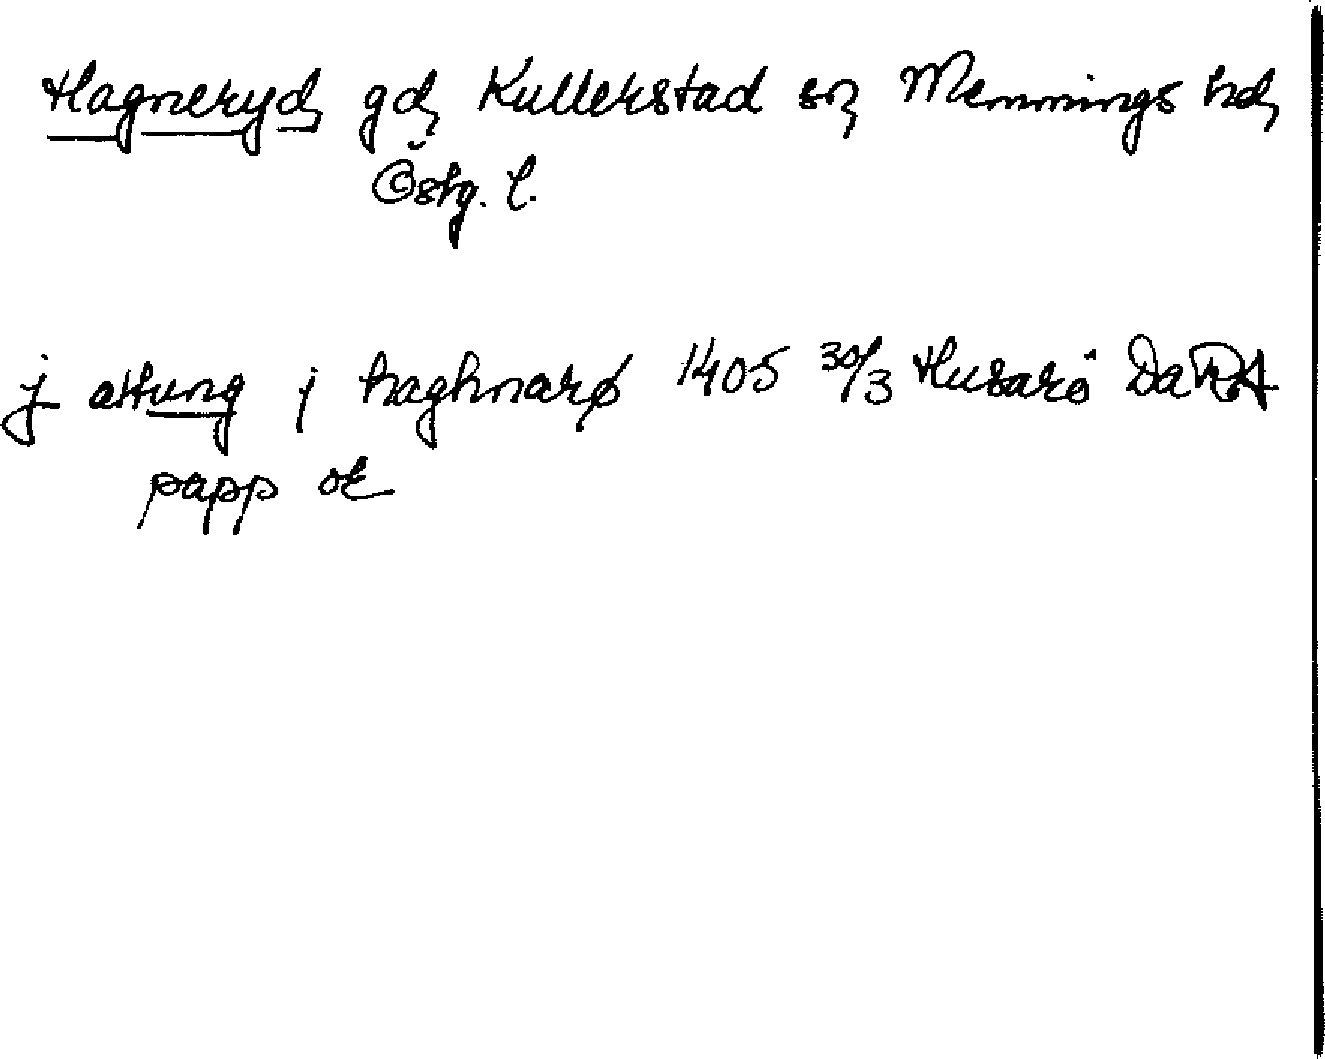 Hagneryd, gd, Kullerstad sn, Memmings hd,
Östg. l.
j attung j haghnarø 1405 30/3 Husarö Da RA
papp or